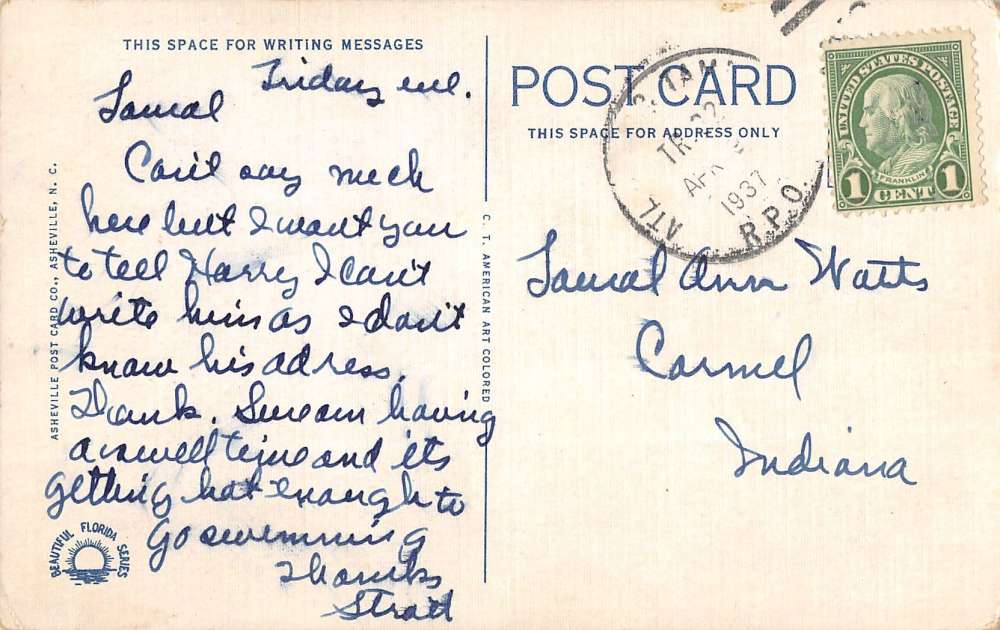 THIS SPACE FOR WRITING MESSAGES
Friday eve.
Can't say much
here but I want you
to tell Harry I can't
write him as I don't
know his adress.
Thank. Sure am having
a swell time and its
getting hot enough to
go swimming
Thanks
ASHEVILLE POST CARD CO., ASHEVILLE, N. C.
C. T. AMERICAN ART COLORED
BEAUTIFUL FLORIDA SERIES
POST CARD
THIS SPACE FOR ADDRESS ONLY
TR. 22
1937
R.P.O.
UNITED STATES POSTAGE
FRANKLIN
1 CENT 1
Ann Watts
Carmel
Indiana